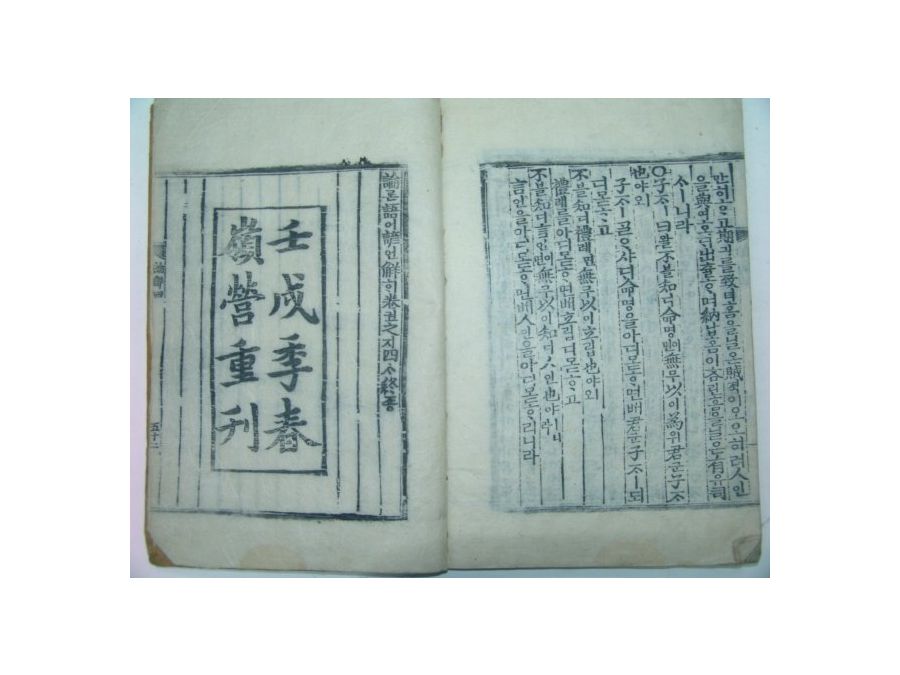 만히ᄒᆞ고期긔를致티홈을닐온賊적이오오히려人인
을與여호ᄃᆡ出츌ᄒᆞ며納납홈이吝린홈을닐온有유司
ᄉᆞㅣ니라
○子ᄌᆞㅣ曰왈不블知디命명이면無무以이爲위君군子ᄌᆞ
也야ㅣ오
子ᄌᆞㅣᄀᆞᆯᄋᆞ샤ᄃᆡ命명을아디몯ᄒᆞ면ᄡᅥ君군子ᄌᆞㅣ되
디몯ᄒᆞ고
不블知디禮례면無무以이立립也야ㅣ오
禮례를아디몯ᄒᆞ면ᄡᅥ立립디몯ᄒᆞ고
不블知디言언이면無무以이知디人인也야ㅣ니라
言언을아디몯ᄒᆞ면ᄡᅥ人인을아디몯ᄒᆞ리니라
論론語어諺언解ᄒᆡ卷권之지四ᄉᆞ終죵
壬戌季春
嶺營重刊
論解四
五十二